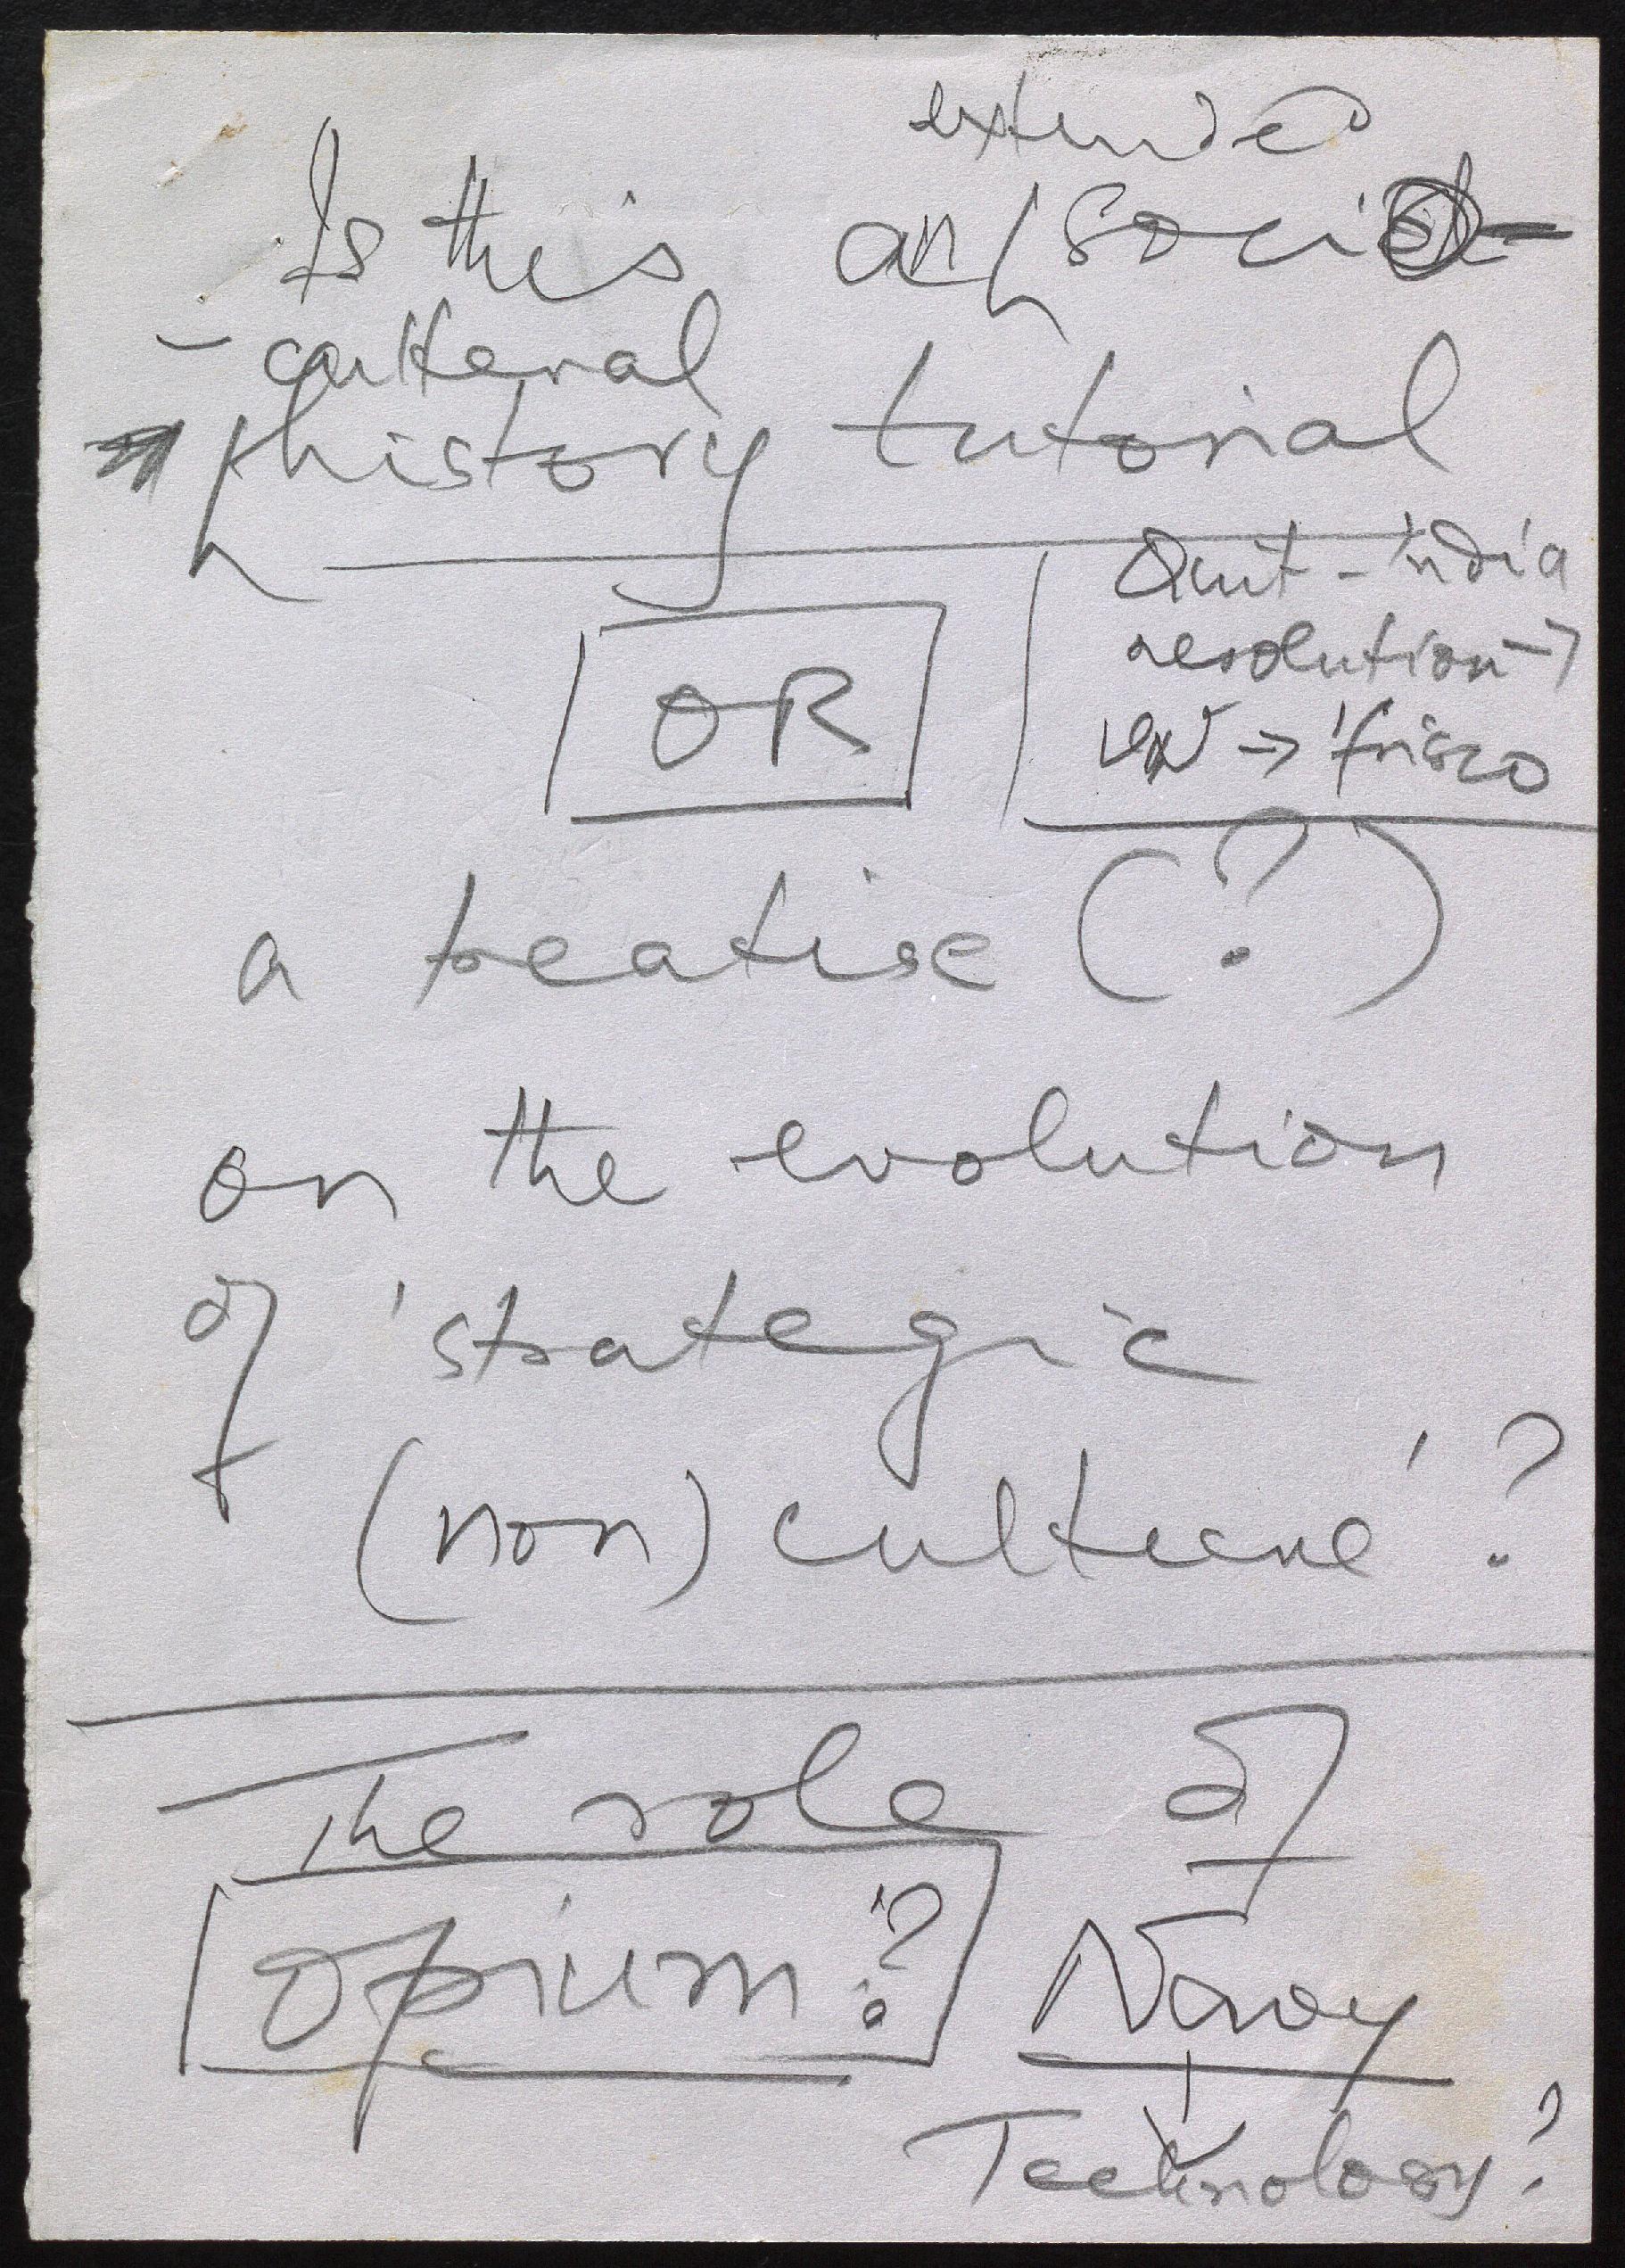 extended
Is this an socio-
-cultural
history tutorial
OR
Quit-india
resolution→
UN → 'frisco
a treatise (?)
on the evolution
of 'strategic
(non) culture' ?
The role of
Opium?
Navy
Technology?